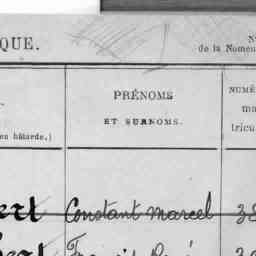 QUE.
N°
de la Nomen
PRÉNOMS
ET SURNOMS.
NUMÉ
ma
tricu
en bâtarde.)
ert Constant Marcel 38